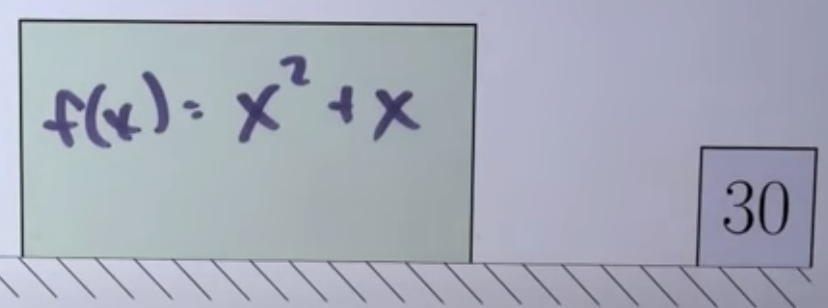 f(x) = x² + x
30